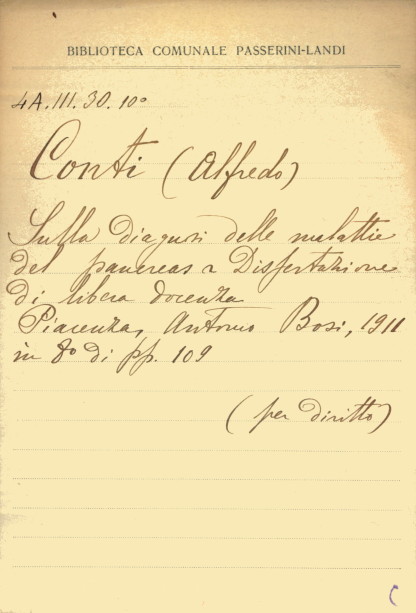 BIBLIOTECA COMUNALE PASSERINI-LANDI
4A.III.30.10°
Conti (Alfredo)
Sulla diagnosi delle malattie
del pancreas Dissertazione
di libera docenza
Piacenza, Antonio Bosi, 1911
in 8° di pp. 109
(per diritto)
C